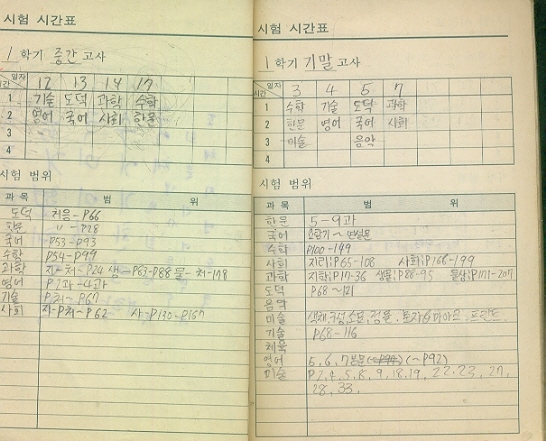 시험 시간표
1 학기 중간 고사
일자 12 13 14 17
시간
1 기술 도덕 과학 수학
2 영어 국어 사회 한문
3
4
시험 범위
과목 범 위
도덕 처음~P66
한문 " ~P28
국어 P53~P93
수학 P54~P99
과학 지-처~P24 생-P63~P88 물-처~
영어 P1과~4과
기술 P처~P67
사회 지-P처~P62 사-P130~P167
시험 시간표
1 학기 기말 고사
일자 3 4 5 7
시간
1 수학 기술 도덕 과학
2 한문 영어 국어 사회
3 미술 음악
4
시험 범위
과목 범 위
한문 5~9과
국어
수학 P100~199
사회 지리:P65~108 사회:P168~199
과학 지학:P17~36 생물:P88~95 물상:P111~207
도덕 P68~
음악
미술
기술 P68~116
체육
영어 5, 6, 7본문 (~P92)
미술 P2, 4, 5, 8, 9, 18, 19, 22, 23, 27,
28, 33.